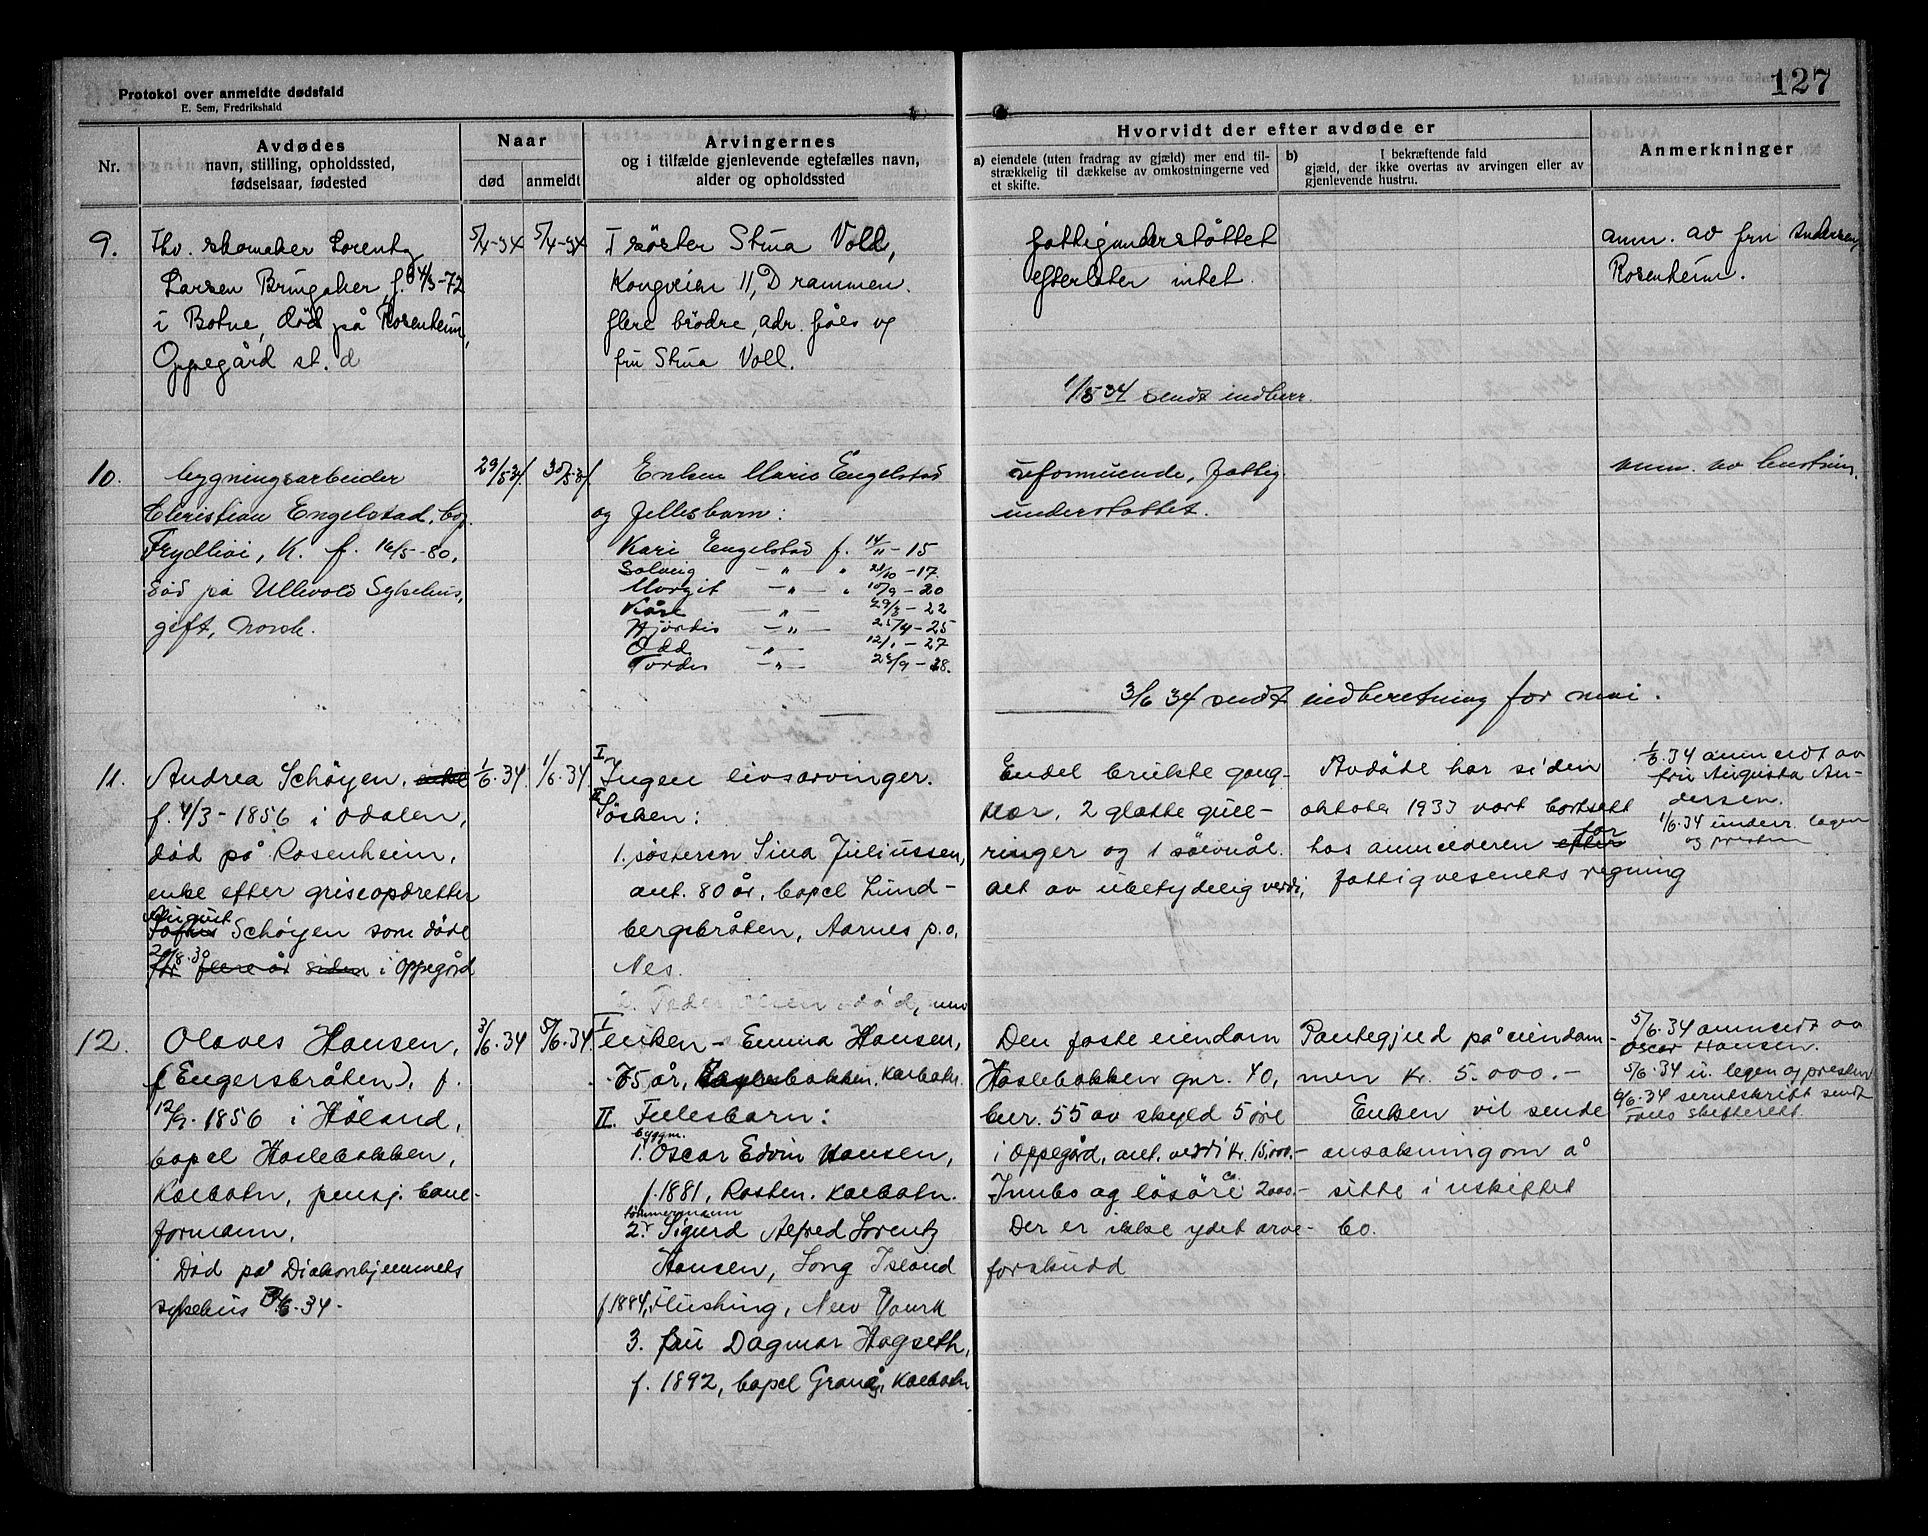 127
Protokol over anmeldte dødsfald
E. Sem, Fredrikshald
Nr.
Avdødes
navn, stilling, opholdssted,
fødselsaar, fødested
Naar
død
anmeldt
Arvingernes
og i tilfælde gjenlevende egtefælles navn,
alder og opholdssted
Hvorvidt der efter avdøde er
a) eiendele (uten fradrag av gjæld) mer end til-
strækkelig til dækkelse av omkostningerne ved
et skifte.
b) I bekræftende fald
gjæld, der ikke overtas av arvingen eller av
gjenlevende hustru.
Anmerkninger
9.
fhv. skomaker Lorentz
Larsen Bringaker f. 4/3-72
i Botne, død på Rosenheim,
Oppegård st. d
5/4-34
5/4-34
I søster Stina Voll,
Kongveien 11, Drammen.
flere brødre, adr. fåes og
fru Stina Voll.
fattigunderstøttet
efterlater intet.
1/5 34 sendt indberr.
anm. av fru Andersen,
Rosenheim.
10.
bygningsarbeider
Christian Engelstad, bop.
Frydliei, K. f. 16/5-80,
død på Ullevold Sykehus,
gift, norsk.
29/5 34
30/5-34
Enken Maris Engelstad
og fellesbarn:
Kari Engelstad f. 14/11-15
Solveig — " — " 21/10-17.
Margit — " — " 10/9-20
Kåre — " — 29/3-22
Hjørdis — " — 25/4-25
Odd — " — 12/1-27
Tordis — " — 28/9-28.
uformuende, fattig
understøttet.
anm. av hustruen.
3/6 34 sendt indberetning for mai.
11.
Andrea Schøyen, enke
f. 4/3-1856 i Odalen,
død på Rosenheim,
enke efter griseopdretter
August
Schøyen som døde
20/8.30
for flere år siden i Oppegård
1/6.34
1/6.34
I Ingen livsarvinger.
II Søsken:
1. søsteren Sina Juliussen,
ant. 80 år, bopel Lund-
bergsbråten, Aarnes p.o.
Nes.
Endel brukte gang-
klær, 2 glatte gull-
ringer og 1 sølvnål.
alt av ubetydelig verdi,
Avdøde har siden
oktober 1933 vært bortsatt
hos anmelderen efter for
fattigvesenets regning
1/6.34 anmeldt av
fru Augusta An-
dersen.
1/6.34 underr. legen
og presten
12.
Olaves Hansen,
(Engersbråten), f.
12/9.1856 i Høland,
bopel Haslebakken,
Kolbotn, pensj. bane-
formann,
Død på Diakonhjemmets
sykehus 3/6.34.
3/6.34
5/6.34.
I enken - Emma Hansen,
75 år, Haslebakken, Kolbotn.
II. Fellesbarn:
byggm.
1. Oscar Edvin Hansen,
f. 1881, Rosten. Kolbotn.
tømmermann
2. Sigurd Alfred Lorentz
Hansen, Long Island
f. 1884, Flushing, New Yourk
3. fru Dagmar Hagseth,
f. 1892, bopel Granås, Kolbotn
Den faste eiendom
Haslebakken gnr. 40,
bnr. 55 av skyld 5 øre
i Oppegård, ant. verdi kr. 15.000.-
Innbo og løsøre ca. 2000.-
Der er ikke ydet arve-
forskudd
Pantegjeld på eiendom-
men kr. 5.000.-
Enken vil sende
ansøkning om å
sitte i uskiftet
bo.
5/6.34 anmeldt av
Oscar Hansen.
5/6.34 u. legen og presten
6/6.34 serutskrift sendt
Follo skifterett